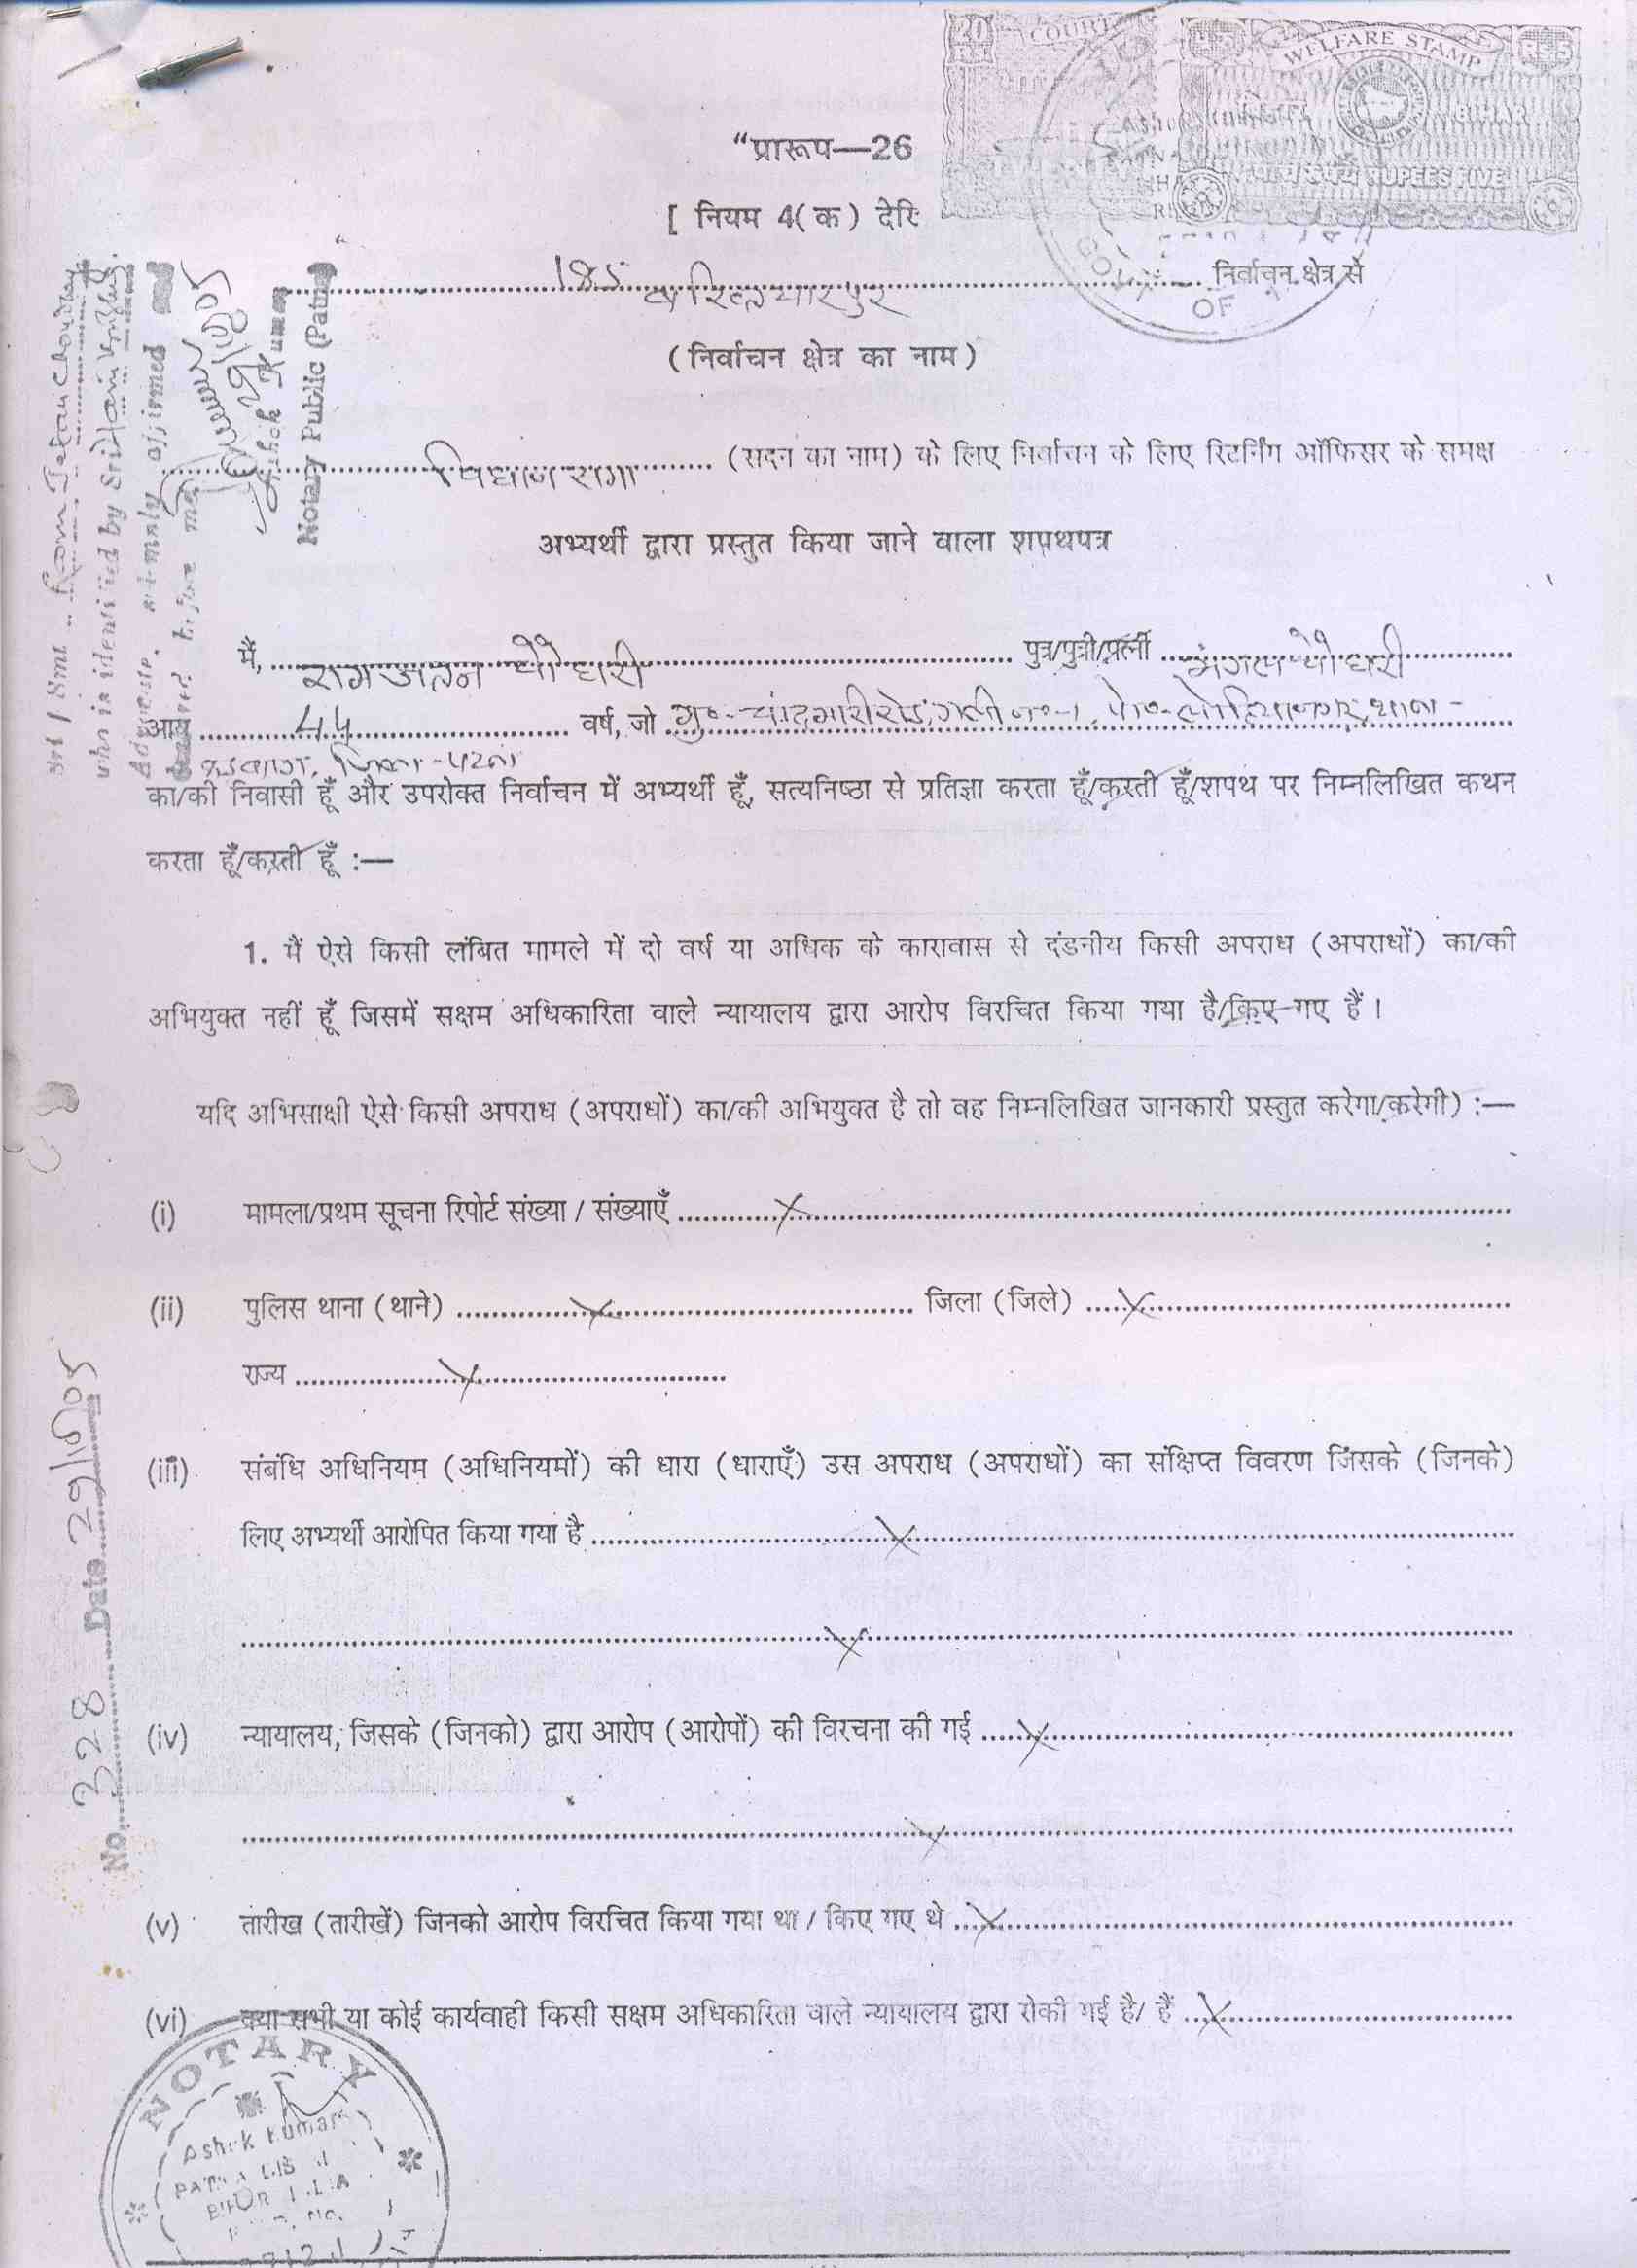 20
COURT
WELFARE STAMP
Rs.5
BIHAR
RUPEES FIVE
OF
“प्रारूप—26
[ नियम 4(क) देखि
185 बख्तियारपुर निर्वाचन क्षेत्र से
(निर्वाचन क्षेत्र का नाम)
विधान सभा (सदन का नाम) के लिए निर्वाचन के लिए रिटर्निंग ऑफिसर के समक्ष
अभ्यर्थी द्वारा प्रस्तुत किया जाने वाला शपथपत्र
मैं, रामजतन चौधरी पुत्र/पुत्री/पत्नी मंगल चौधरी
आयु 44 वर्ष, जो मु०-चांदमारी रोड, गली न०-1, पो०-लोहियानगर, थाना-
कंकड़बाग, जिला-पटना
का/की निवासी हूँ और उपरोक्त निर्वाचन में अभ्यर्थी हूँ, सत्यनिष्ठा से प्रतिज्ञा करता हूँ/करती हूँ/शपथ पर निम्नलिखित कथन
करता हूँ/करती हूँ :—
1. मैं ऐसे किसी लंबित मामले में दो वर्ष या अधिक के कारावास से दंडनीय किसी अपराध (अपराधों) का/की
अभियुक्त नहीं हूँ जिसमें सक्षम अधिकारिता वाले न्यायालय द्वारा आरोप विरचित किया गया है/किए गए हैं ।
यदि अभिसाक्षी ऐसे किसी अपराध (अपराधों) का/की अभियुक्त है तो वह निम्नलिखित जानकारी प्रस्तुत करेगा/करेगी) :—
(i) मामला/प्रथम सूचना रिपोर्ट संख्या / संख्याएँ ............X............
(ii) पुलिस थाना (थाने) ............X............ जिला (जिले) .....X............
राज्य ............X............
(iii) संबंधि अधिनियम (अधिनियमों) की धारा (धाराएँ) उस अपराध (अपराधों) का संक्षिप्त विवरण जिसके (जिनके)
लिए अभ्यर्थी आरोपित किया गया है ............X............
............X............
(iv) न्यायालय, जिसके (जिनको) द्वारा आरोप (आरोपों) की विरचना की गई .....X............
............X............
(v) तारीख (तारीखें) जिनको आरोप विरचित किया गया था / किए गए थे ...X............
(vi) क्या सभी या कोई कार्यवाही किसी सक्षम अधिकारिता वाले न्यायालय द्वारा रोकी गई है/ हैं ...X............
Sri / Smt .. Ram Jatan Choudhary
who is identified by Sri
Advocate, solemnly affirmed and
before me
29/9/05
Ashok Kumar
Notary Public (Patna)
No. 328 Date 29/9/05
NOTARY
Ashok Kumar